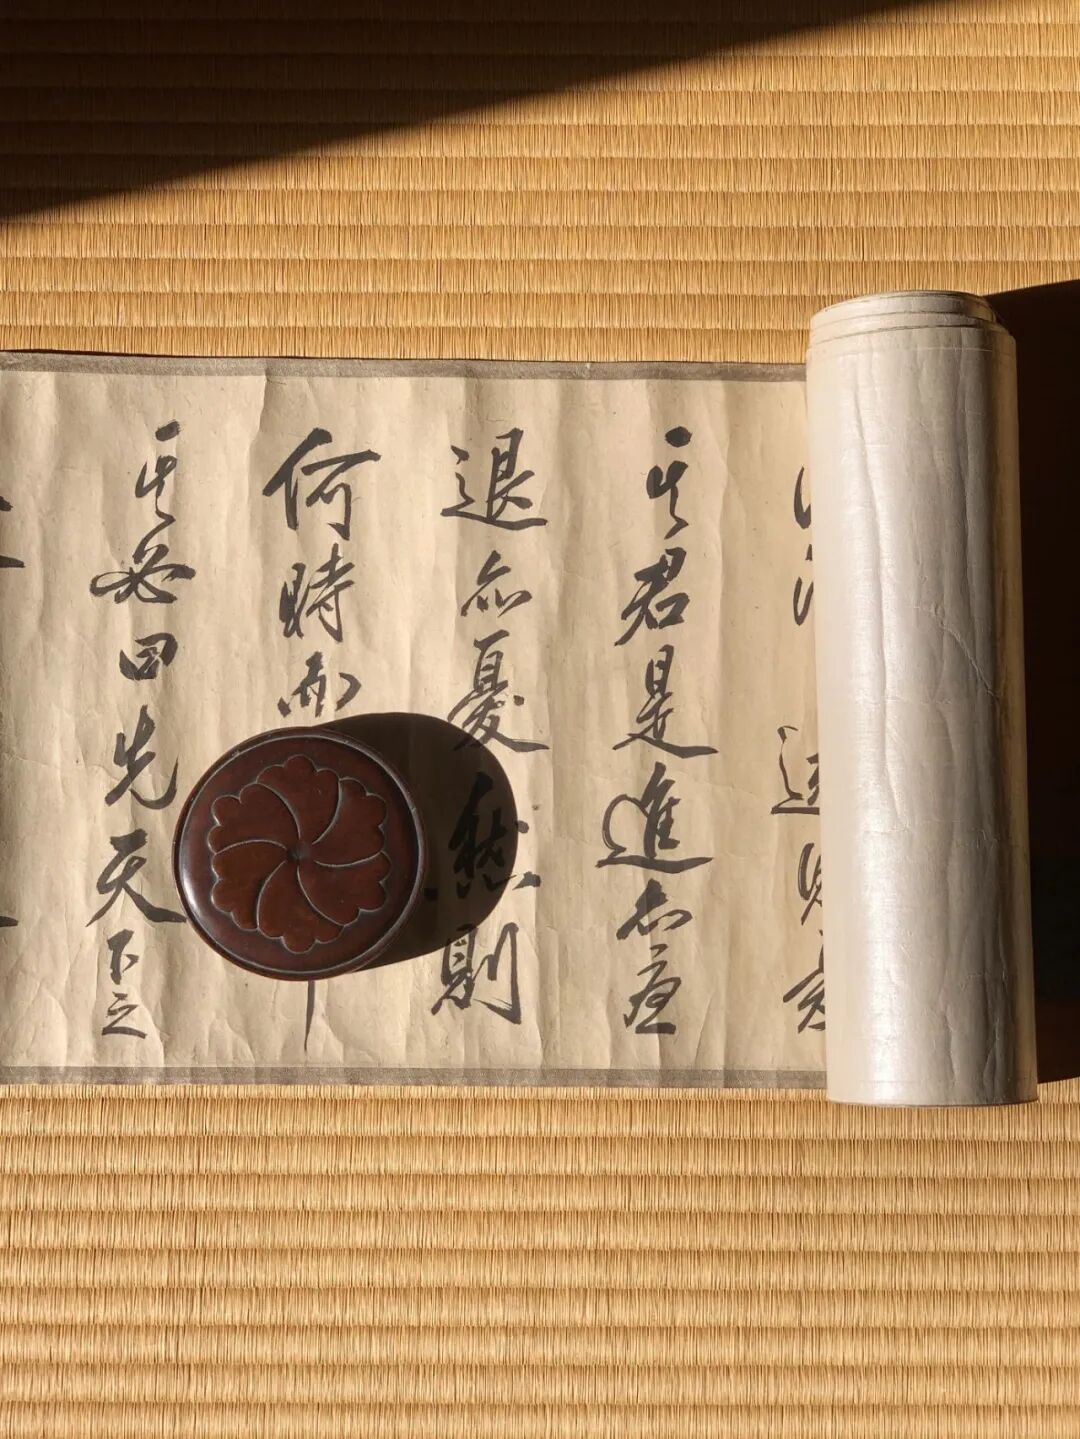 其君是進亦憂
退亦憂然則
何時而
其必曰先天下之